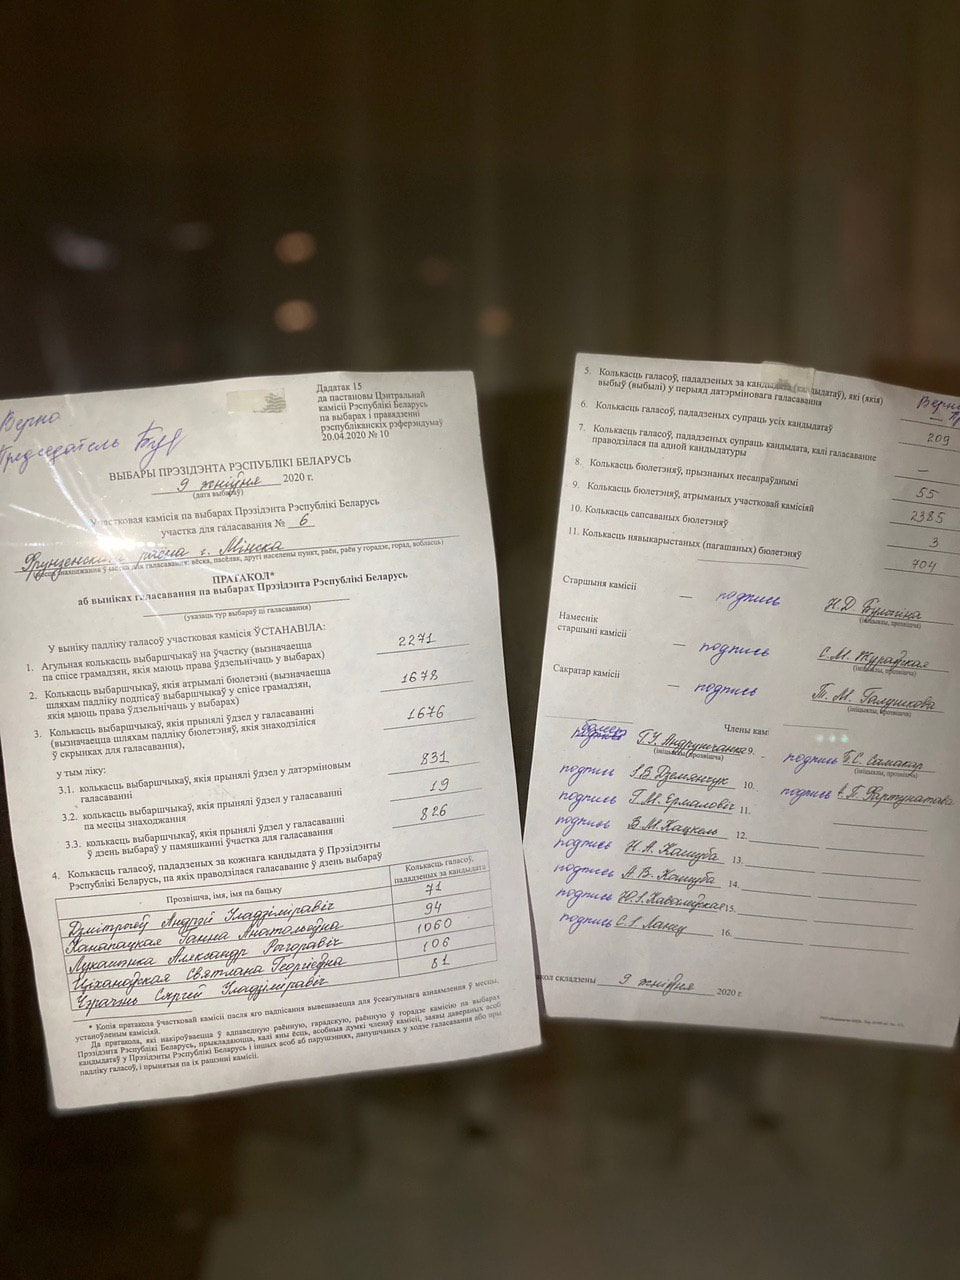 Верно
Председатель
Дадатак 15
да пастановы Цэнтральнай
камісіі Рэспублікі Беларусь
па выбарах і правядзенні
рэспубліканскіх рэферэндумаў
20.04.2020 № 10
ВЫБАРЫ ПРЭЗІДЭНТА РЭСПУБЛІКІ БЕЛАРУСЬ
9 жніўня 2020 г.
(дата выбараў)
Участковая камісія па выбарах Прэзідэнта Рэспублікі Беларусь
участка для галасавання № 6
раёна г. Мінска
вёска, пасёлак, другі населены пункт, раён, раён у горадзе, горад, вобласць)
ПРАТАКОЛ*
аб выніках галасавання на выбарах Прэзідэнта Рэспублікі Беларусь
(указаць тур выбараў ці галасавання)
У выніку падліку галасоў участковая камісія ЎСТАНАВІЛА:
1. Агульная колькасць выбаршчыкаў на ўчастку (вызначаецца
па спісе грамадзян, якія маюць права ўдзельнічаць у выбарах) 2271
2. Колькасць выбаршчыкаў, якія атрымалі бюлетэні (вызначаецца
шляхам падліку подпісаў выбаршчыкаў у спісе грамадзян,
якія маюць права ўдзельнічаць у выбарах) 1678
3. Колькасць выбаршчыкаў, якія прынялі ўдзел у галасаванні
(вызначаецца шляхам падліку бюлетэняў, якія знаходзіліся
ў скрынках для галасавання), 1676
у тым ліку:
3.1. колькасць выбаршчыкаў, якія прынялі ўдзел у датэрміновым
галасаванні 831
3.2. колькасць выбаршчыкаў, якія прынялі ўдзел у галасаванні
па месцы знаходжання 19
3.3. колькасць выбаршчыкаў, якія прынялі ўдзел у галасаванні
ў дзень выбараў у памяшканні ўчастка для галасавання 826
4. Колькасць галасоў, пададзеных за кожнага кандыдата ў Прэзідэнты
Рэспублікі Беларусь, па якіх праводзілася галасаванне ў дзень выбараў
Прозвішча, імя, імя па бацьку
Колькасць галасоў,
пададзеных за кандыдата
Дмітрыеў Андрэй Уладзіміравіч 71
Канапацкая Ганна Анатольеўна 94
Лукашэнка Аляксандр Рыгоравіч 1060
Ціханоўская Святлана Георгіеўна 106
Чэрачэнь Сяргей Уладзіміравіч 81
* Копія пратакола ўчастковай камісіі пасля яго падпісання вывешваецца для ўсеагульнага азнаямлення ў месцы,
устаноўленым камісіяй.
Да пратакола, які накіроўваецца ў адпаведную раённую, гарадскую, раённую ў горадзе камісію па выбарах
Прэзідэнта Рэспублікі Беларусь, прыкладаюцца, калі яны ёсць, асобныя думкі членаў камісіі, заявы давераных асоб
кандыдатаў у Прэзідэнты Рэспублікі Беларусь і іншых асоб аб парушэннях, дапушчаных у ходзе галасавання або пры
падліку галасоў, і прынятыя па іх рашэнні камісіі.
Верно
5. Колькасць галасоў, пададзеных за кандыдата (кандыдатаў), які (якія)
выбыў (выбылі) у перыяд датэрміновага галасавання –
6. Колькасць галасоў, пададзеных супраць усіх кандыдатаў 209
7. Колькасць галасоў, пададзеных супраць кандыдата, калі галасаванне
праводзілася па адной кандыдатуры –
8. Колькасць бюлетэняў, прызнаных несапраўднымі 55
9. Колькасць бюлетэняў, атрыманых участковай камісіяй 2385
10. Колькасць сапсаваных бюлетэняў 3
11. Колькасць нявыкарыстаных (пагашаных) бюлетэняў 704
Старшыня камісіі – подпись Н.Д. Булогина
(ініцыялы, прозвішча)
Намеснік
старшыні камісіі – подпись С.М. Жураўская
(ініцыялы, прозвішча)
Сакратар камісіі – подпись Т.М. Галушкова
(ініцыялы, прозвішча)
Члены кам
Г.У. Андрунчанка 9. подпись Г.С. Самакар
(ініцыялы, прозвішча) (ініцыялы, прозвішча)
подпись І.В. Дземянчук 10. подпись
подпись Г.М. Ермаловіч 11.
подпись В.М. Кацкель 12.
подпись Н.А. Кашуба 13.
подпись А.В. Кашуба 14.
подпись 15.
подпись 16.
кол складзены 9 жніўня 2020 г.